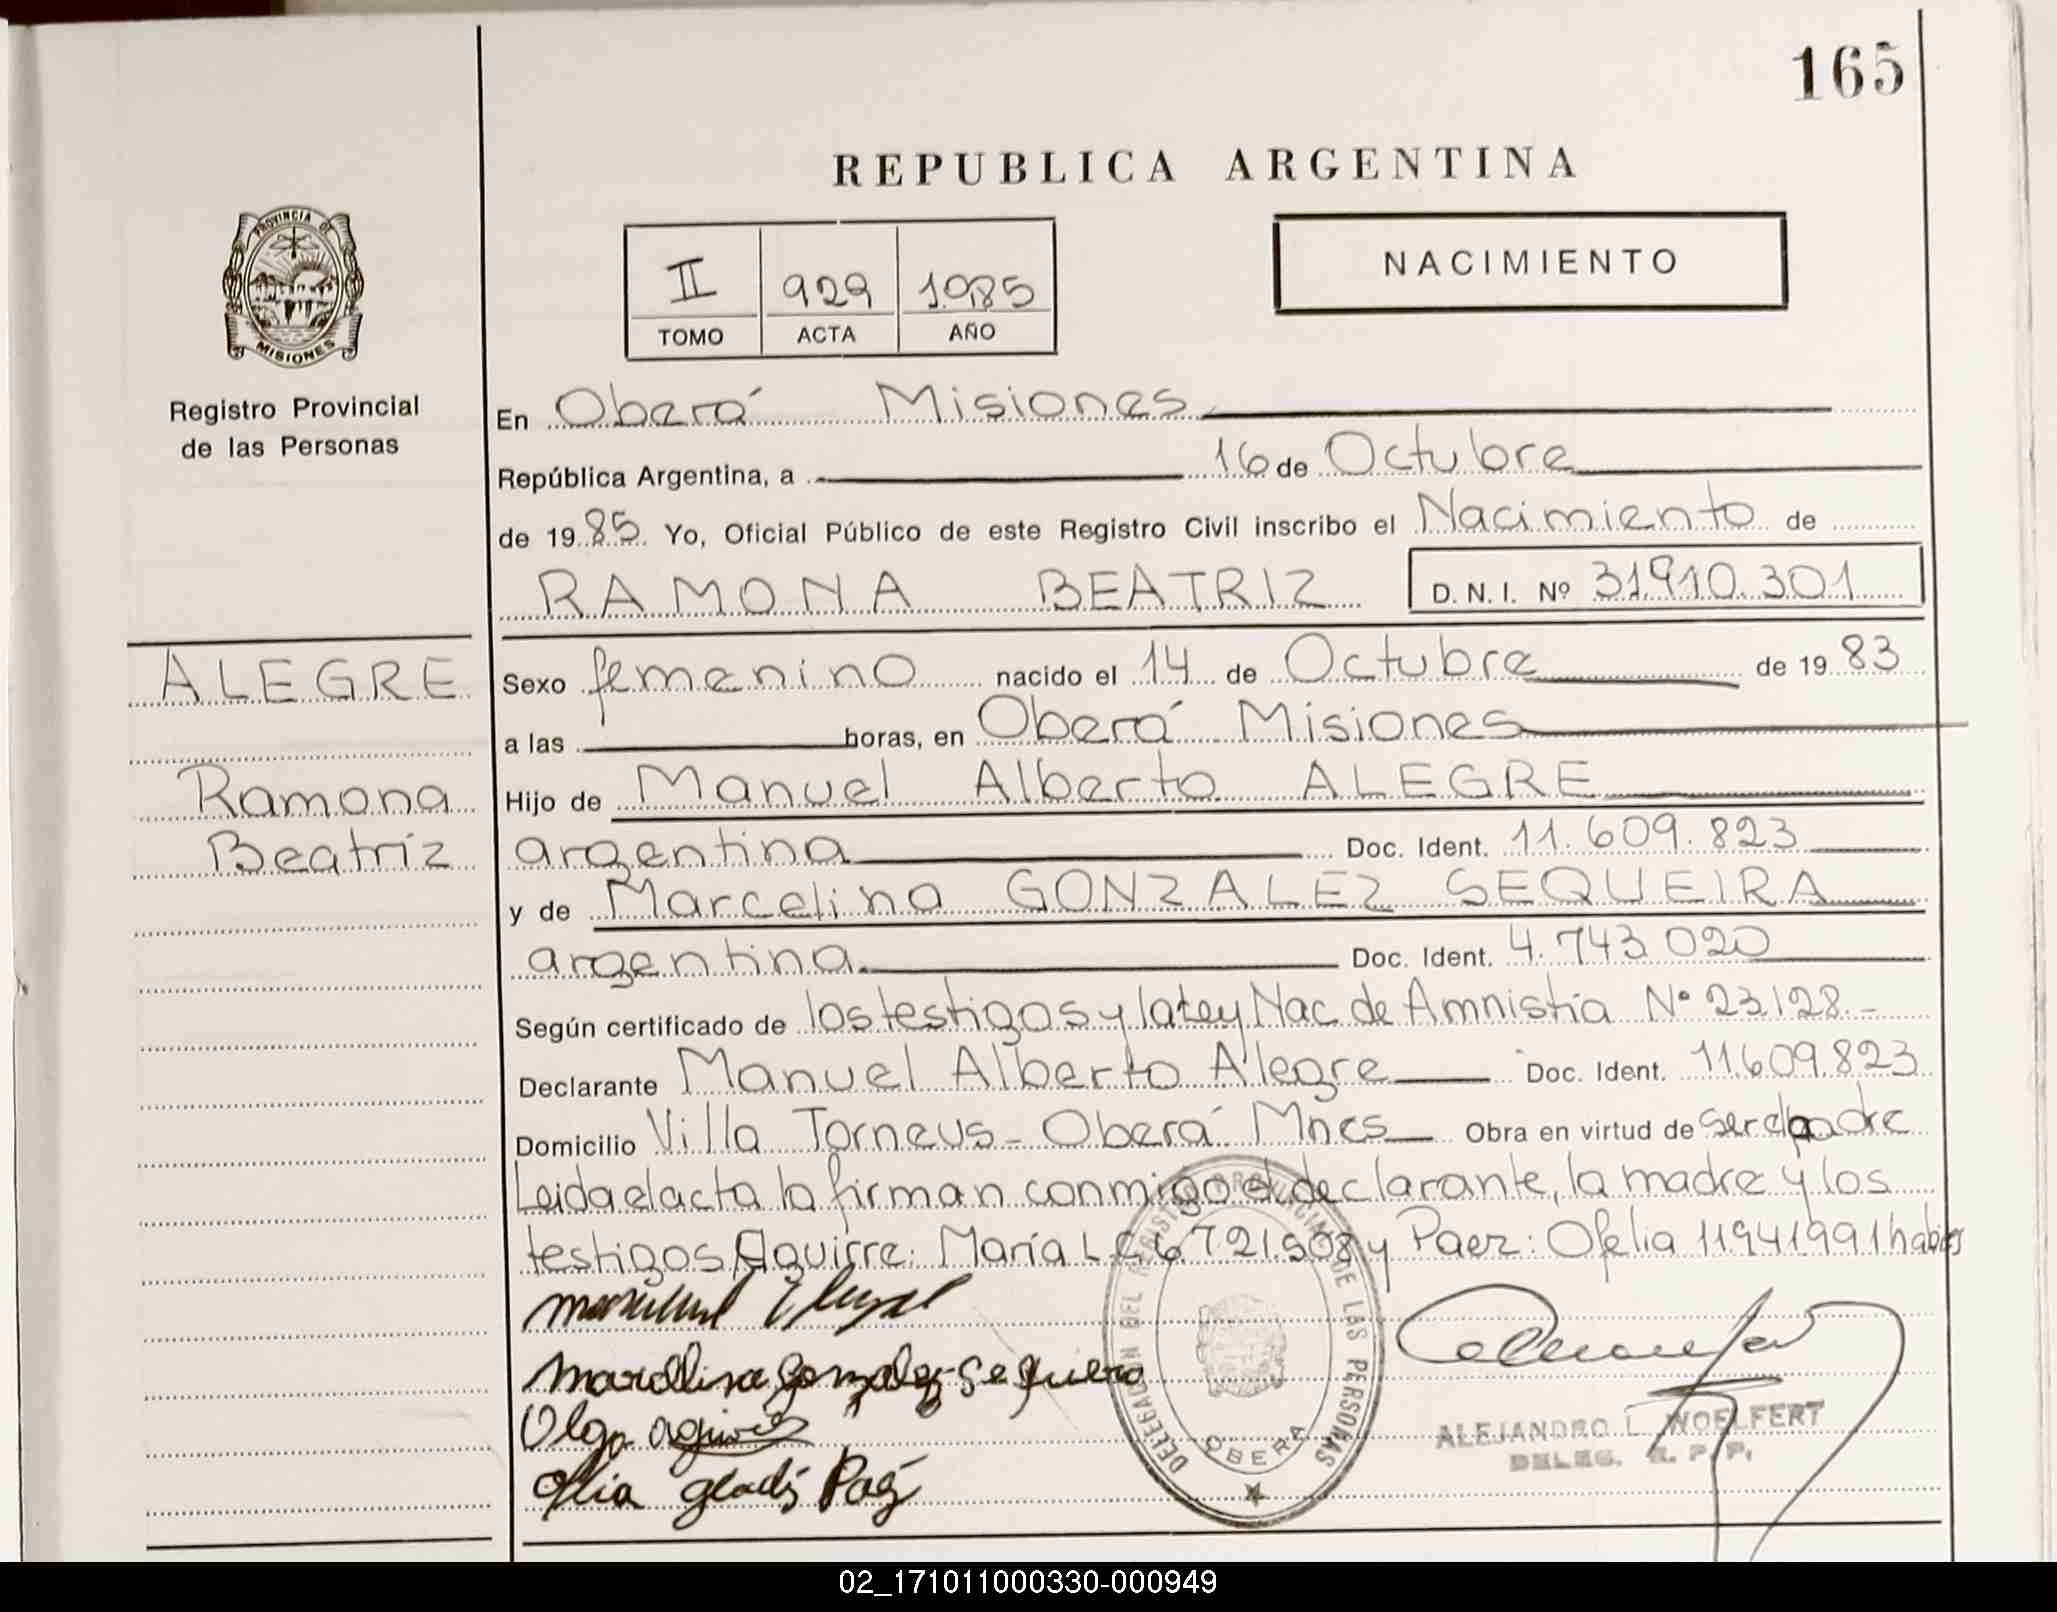 165
REPUBLICA ARGENTINA
PROVINCIA DE
MISIONES
Registro Provincial
de las Personas
II 929 1985
TOMO ACTA AÑO
NACIMIENTO
En Oberá Misiones
República Argentina, a 16 de Octubre
de 1985 Yo, Oficial Público de este Registro Civil inscribo el Nacimiento de
RAMONA BEATRIZ D.N.I. Nº 31.910.301
ALEGRE
Ramona
Beatríz
Sexo femenino nacido el 14 de Octubre de 1983
a las horas, en Oberá Misiones
Hijo de Manuel Alberto ALEGRE
argentina Doc. Ident. 11.609.823
y de Marcelina GONZALEZ SEQUEIRA
argentina Doc. Ident. 4.743.020
Según certificado de los testigos y la Ley Nac de Amnistía Nº 23.128.-
Declarante Manuel Alberto Alegre Doc. Ident. 11.609.823
Domicilio Villa Torneus - Oberá Mnes Obra en virtud de ser el padre
Leida el acta la firman conmigo el declarante, la madre y los
testigos Aguirre: María L.C 6.721.508 y Paez: Ofelia 11941991 habies
Marcelina Gonzalez Sequera
Olga
Ofelia Gladis Paez
DELEGACION DEL REGISTRO PROVINCIAL DE LAS PERSONAS
OBERA
ALEJANDRO L. WOELFERT
DELEG. R. P. P.
02_171011000330-000949